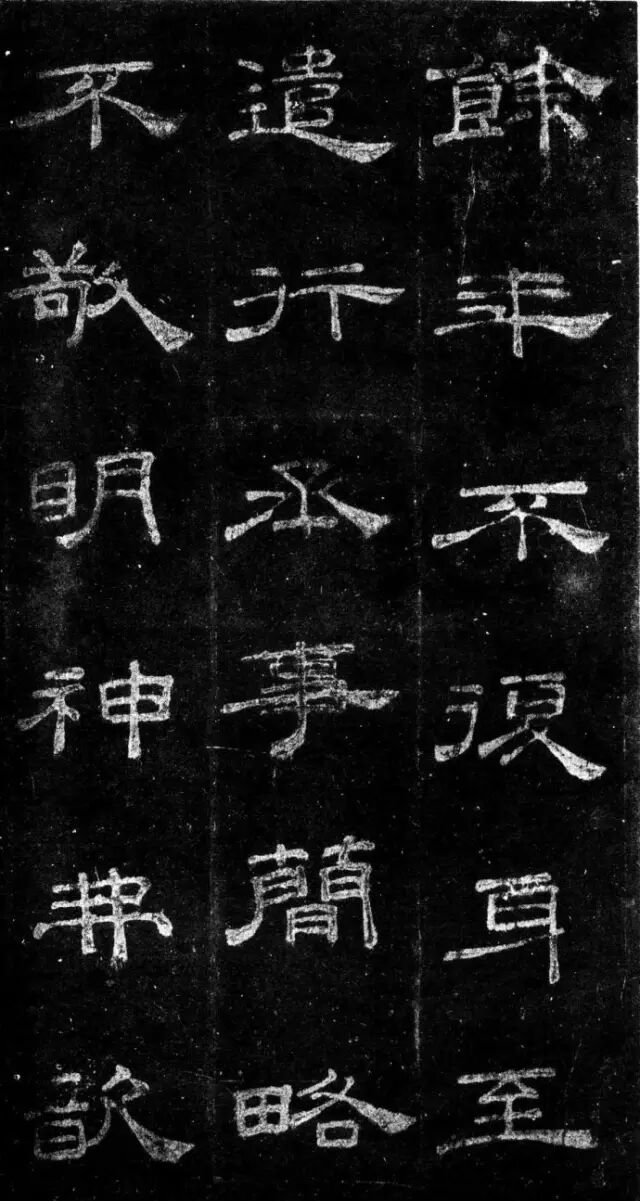 餘年不復身至
遣行丞事簡略
不敬明神弗歆